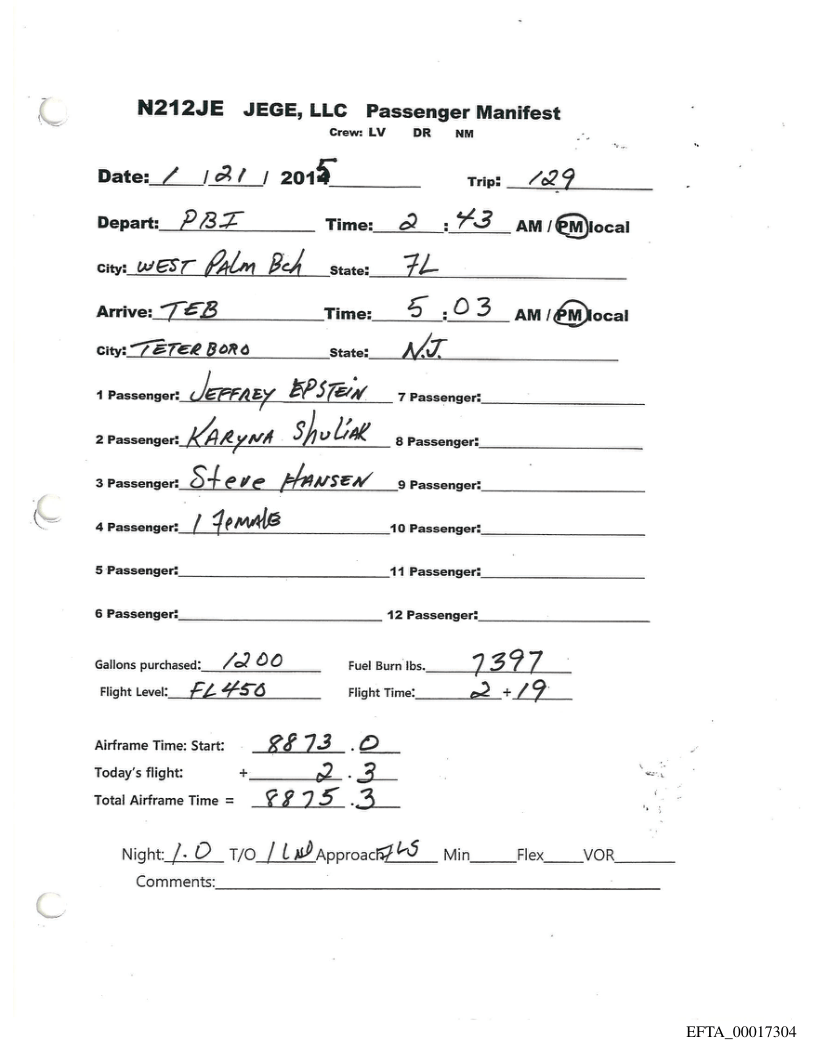 N212JE JEGE, LLC Passenger Manifest
Crew: LV DR NM
Date: 1 / 21 / 2015 Trip: 129
Depart: PBI Time: 2 : 43 AM / PM local
City: WEST PALM Bch State: FL
Arrive: TEB Time: 5 : 03 AM / PM local
City: TETERBORO State: N.J.
1 Passenger: JEFFREY EPSTEIN 7 Passenger:
2 Passenger: KARYNA SHULIAK 8 Passenger:
3 Passenger: Steve HANSEN 9 Passenger:
4 Passenger: 1 FEMALE 10 Passenger:
5 Passenger: 11 Passenger:
6 Passenger: 12 Passenger:
Gallons purchased: 1200 Fuel Burn lbs. 7397
Flight Level: FL450 Flight Time: 2 + 19
Airframe Time: Start: 8873 . 0
Today's flight: + 2 . 3
Total Airframe Time = 8875 . 3
Night: 1.0 T/O 1 Approach Min Flex VOR
Comments:
EFTA_00017304